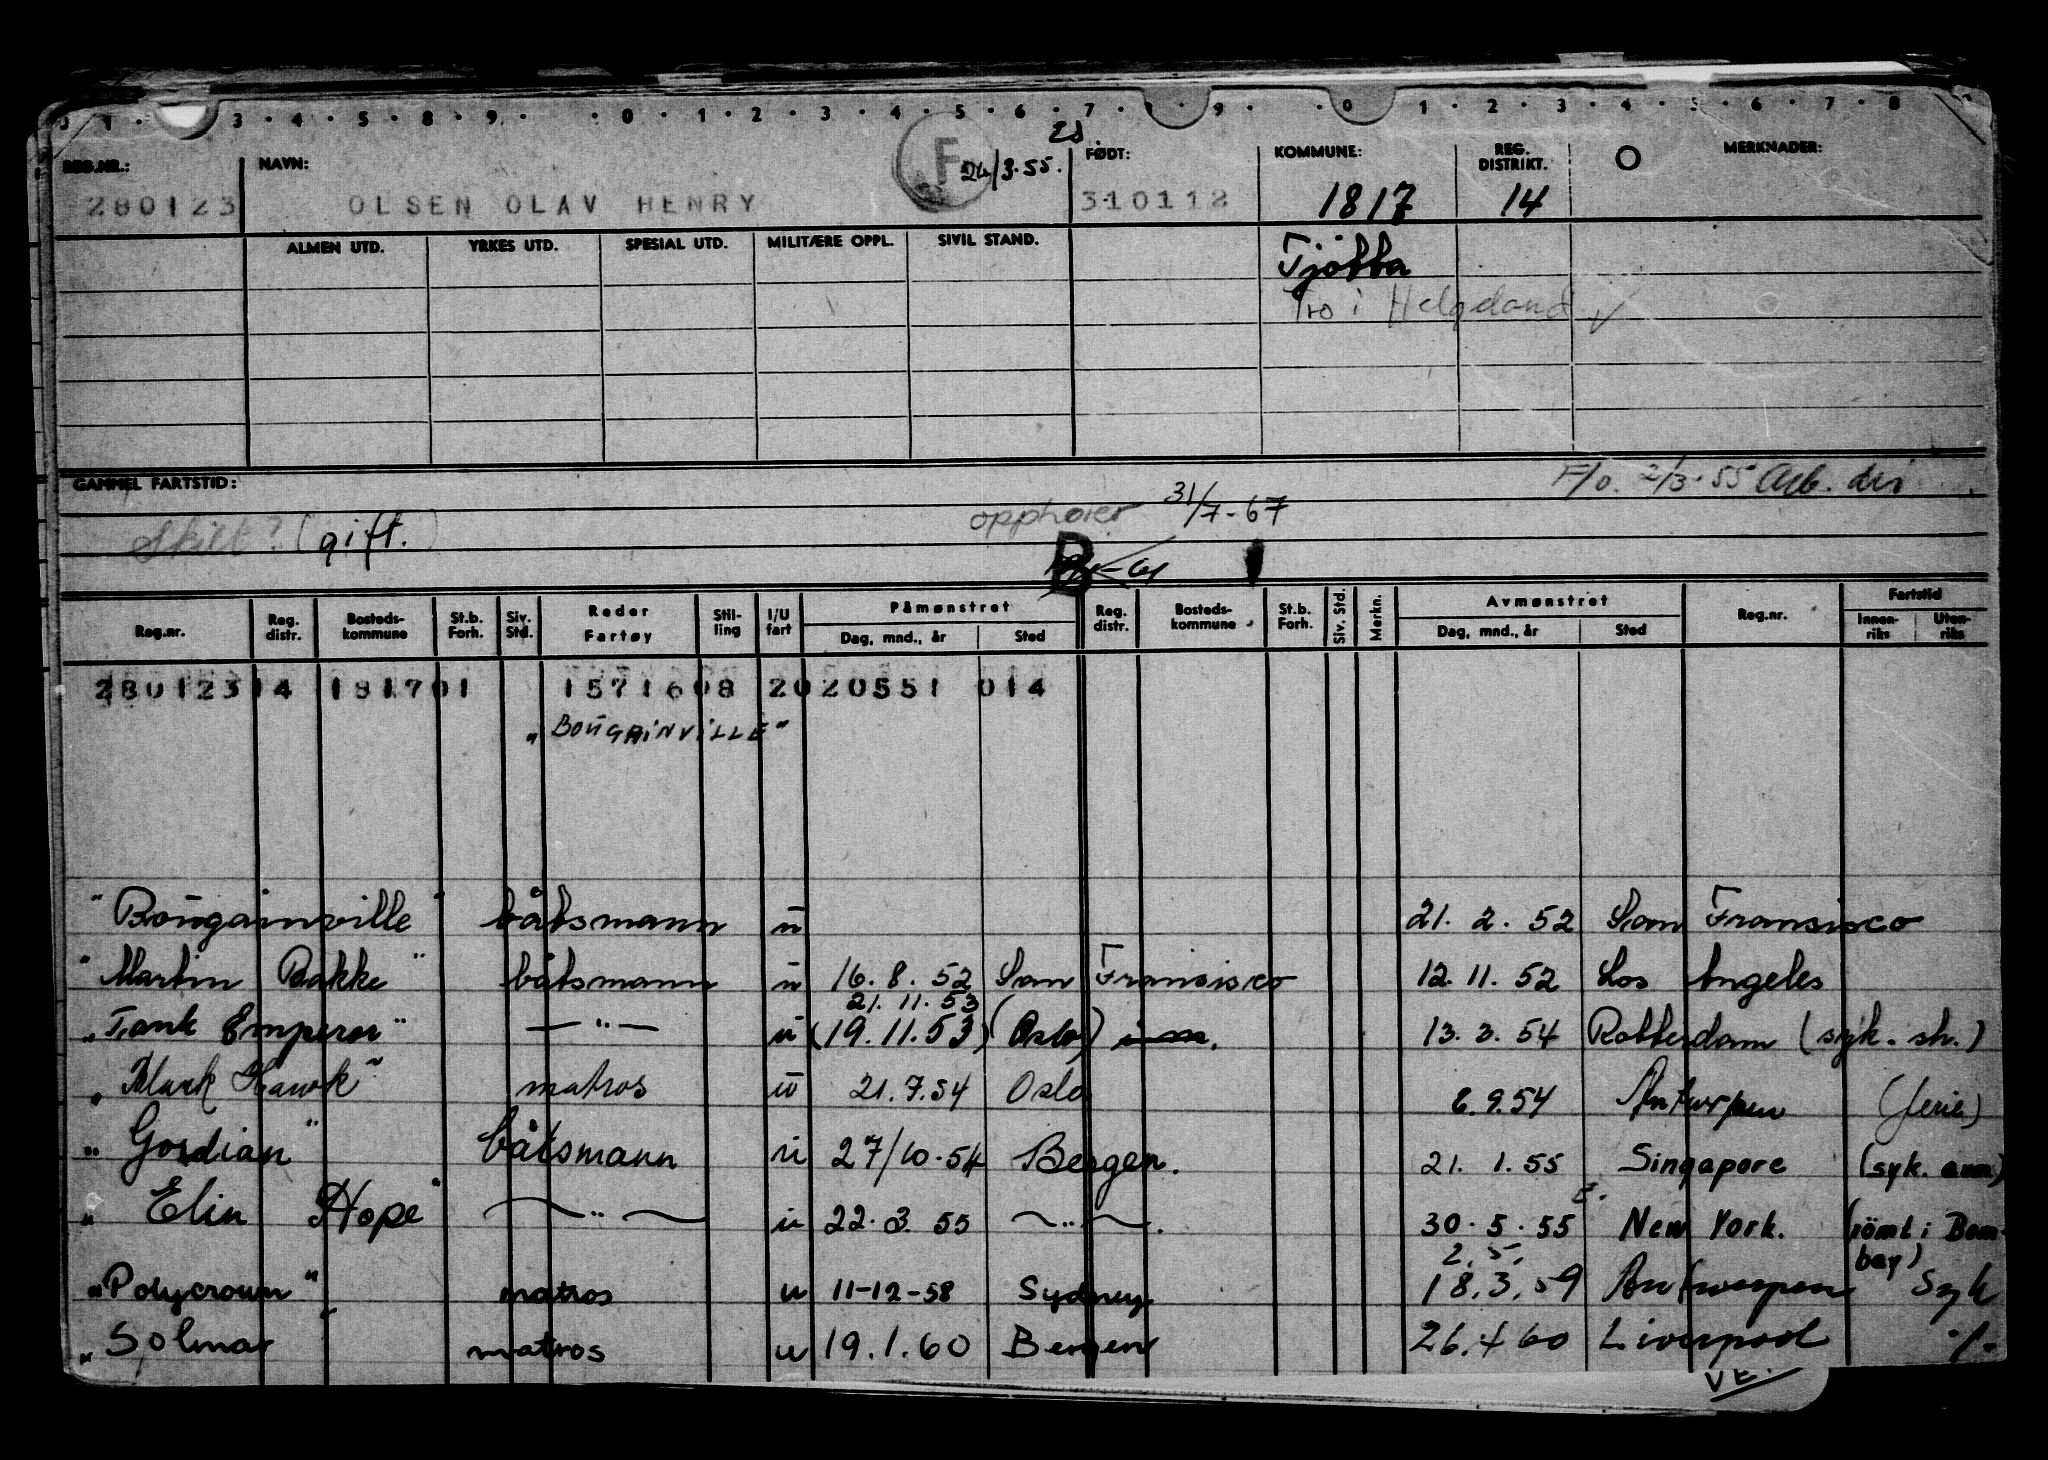 0 1 · 3 · 4 · 5 · 8 · 9 · · 0 · 1 · 2 · 3 · 4 · 5 · 6 · 7 · 8 · 9 · · 0 1 · 2 · 3 · 4 · 5 · 6 · 7 · 8
REG.NR.: NAVN: F 24/3·55. FØDT: KOMMUNE: REG. DISTRIKT. MERKNADER:
280123 OLSEN OLAV HENRY 310112 1817 14
ALMEN UTD. YRKES UTD. SPESIAL UTD. MILITÆRE OPPL. SIVIL STAND. Tjøtta
Tro i Helgeland √
GAMMEL FARTSTID: F/o. 2/3·55 Arb. dir
Skilt? (gift.) opphører 31/7-67
B
Reg.nr. Reg. distr. Bosteds- kommune St.b. Forh. Siv. Std. Reder Fartøy Stil- ling I/U fart Påmønstret Dag, mnd., år Sted Reg. distr. Bosteds- kommune St.b. Forh. Siv. Std. Merkn. Avmønstret Dag, mnd., år Sted Reg.nr. Fartstid Innen- riks Uten- riks
280123 14 1817 01 1571608 2 020551 014
"BOUGAINVILLE"
"Bougainville" båtsmann u 21. 2. 52 San Fransisco
"Martin Bakke" båtsmann u 16. 8. 52 San Fransisco 12. 11. 52 Los Angeles
21. 11. 53
"Tank Emperor" — " — u (19. 11. 53) (Oslo) 13. 3. 54 Rotterdam (syk. sh.)
"Black Hawk" matros u 21. 7. 54 Oslo 8. 9. 54 Antwerpen (ferie)
"Gordian" båtsmann u 27/10·54 Bergen. 21. 1. 55 Singapore (syk. anm)
"Elin Hope" — " — u 22. 3. 55 — " —. 30. 5. 55 New York. (römt i Bom-
bay)
2. 5.
"Polycrown" matros u 11-12-58 Sydney 18. 3. 59 Antwerpen Syk
"Solmar" matros u 19. 1. 60 Bergen 26. 4 60 Liverpool ·/.